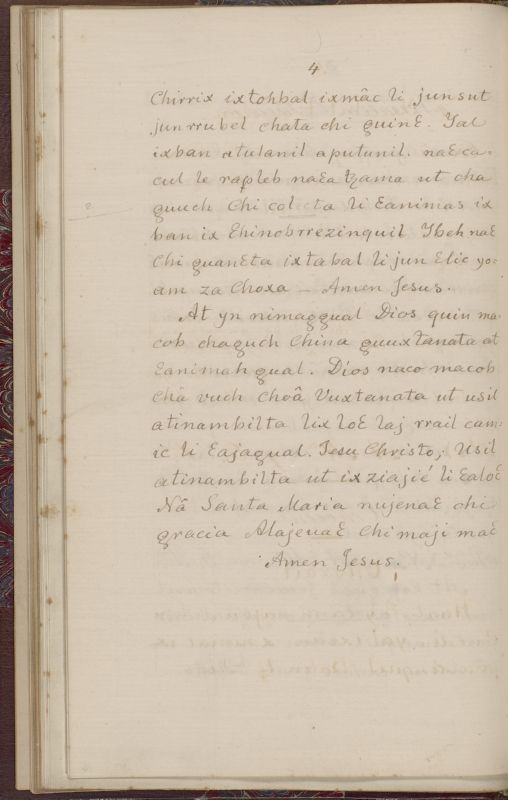 4
Chirrix ixtohbal ixmâc li junsut
junrrubel chata chi quinɛ. Yal
ixban atulanil aputunil. naɛca-
cul le rapleb naɛatzama ut cha
guuch Chi colcta li ɛanimas ix
ban ix Ehinobrrezinquil Ybeh naɛ
chi guanɛta ixtabal li jun ɛlic yo=
am za Choxa — Amen Jesus.
At yn nimagqual Dios quin ma-
cob chaguch China guuxtanata at
ɛanimah gual. Dios naco macob
châ vuch choâ Vuxtanata ut usil
atinambilta lix loɛ laj rrail cam=
ic li ɛajagual. Jesu Christo, Usil
atinambilta ut ixziajié li ɛaloɛ
Nâ Santa Maria nujenaɛ chi
gracia Alajenaɛ chi maji maɛ
Amen Jesus.
?